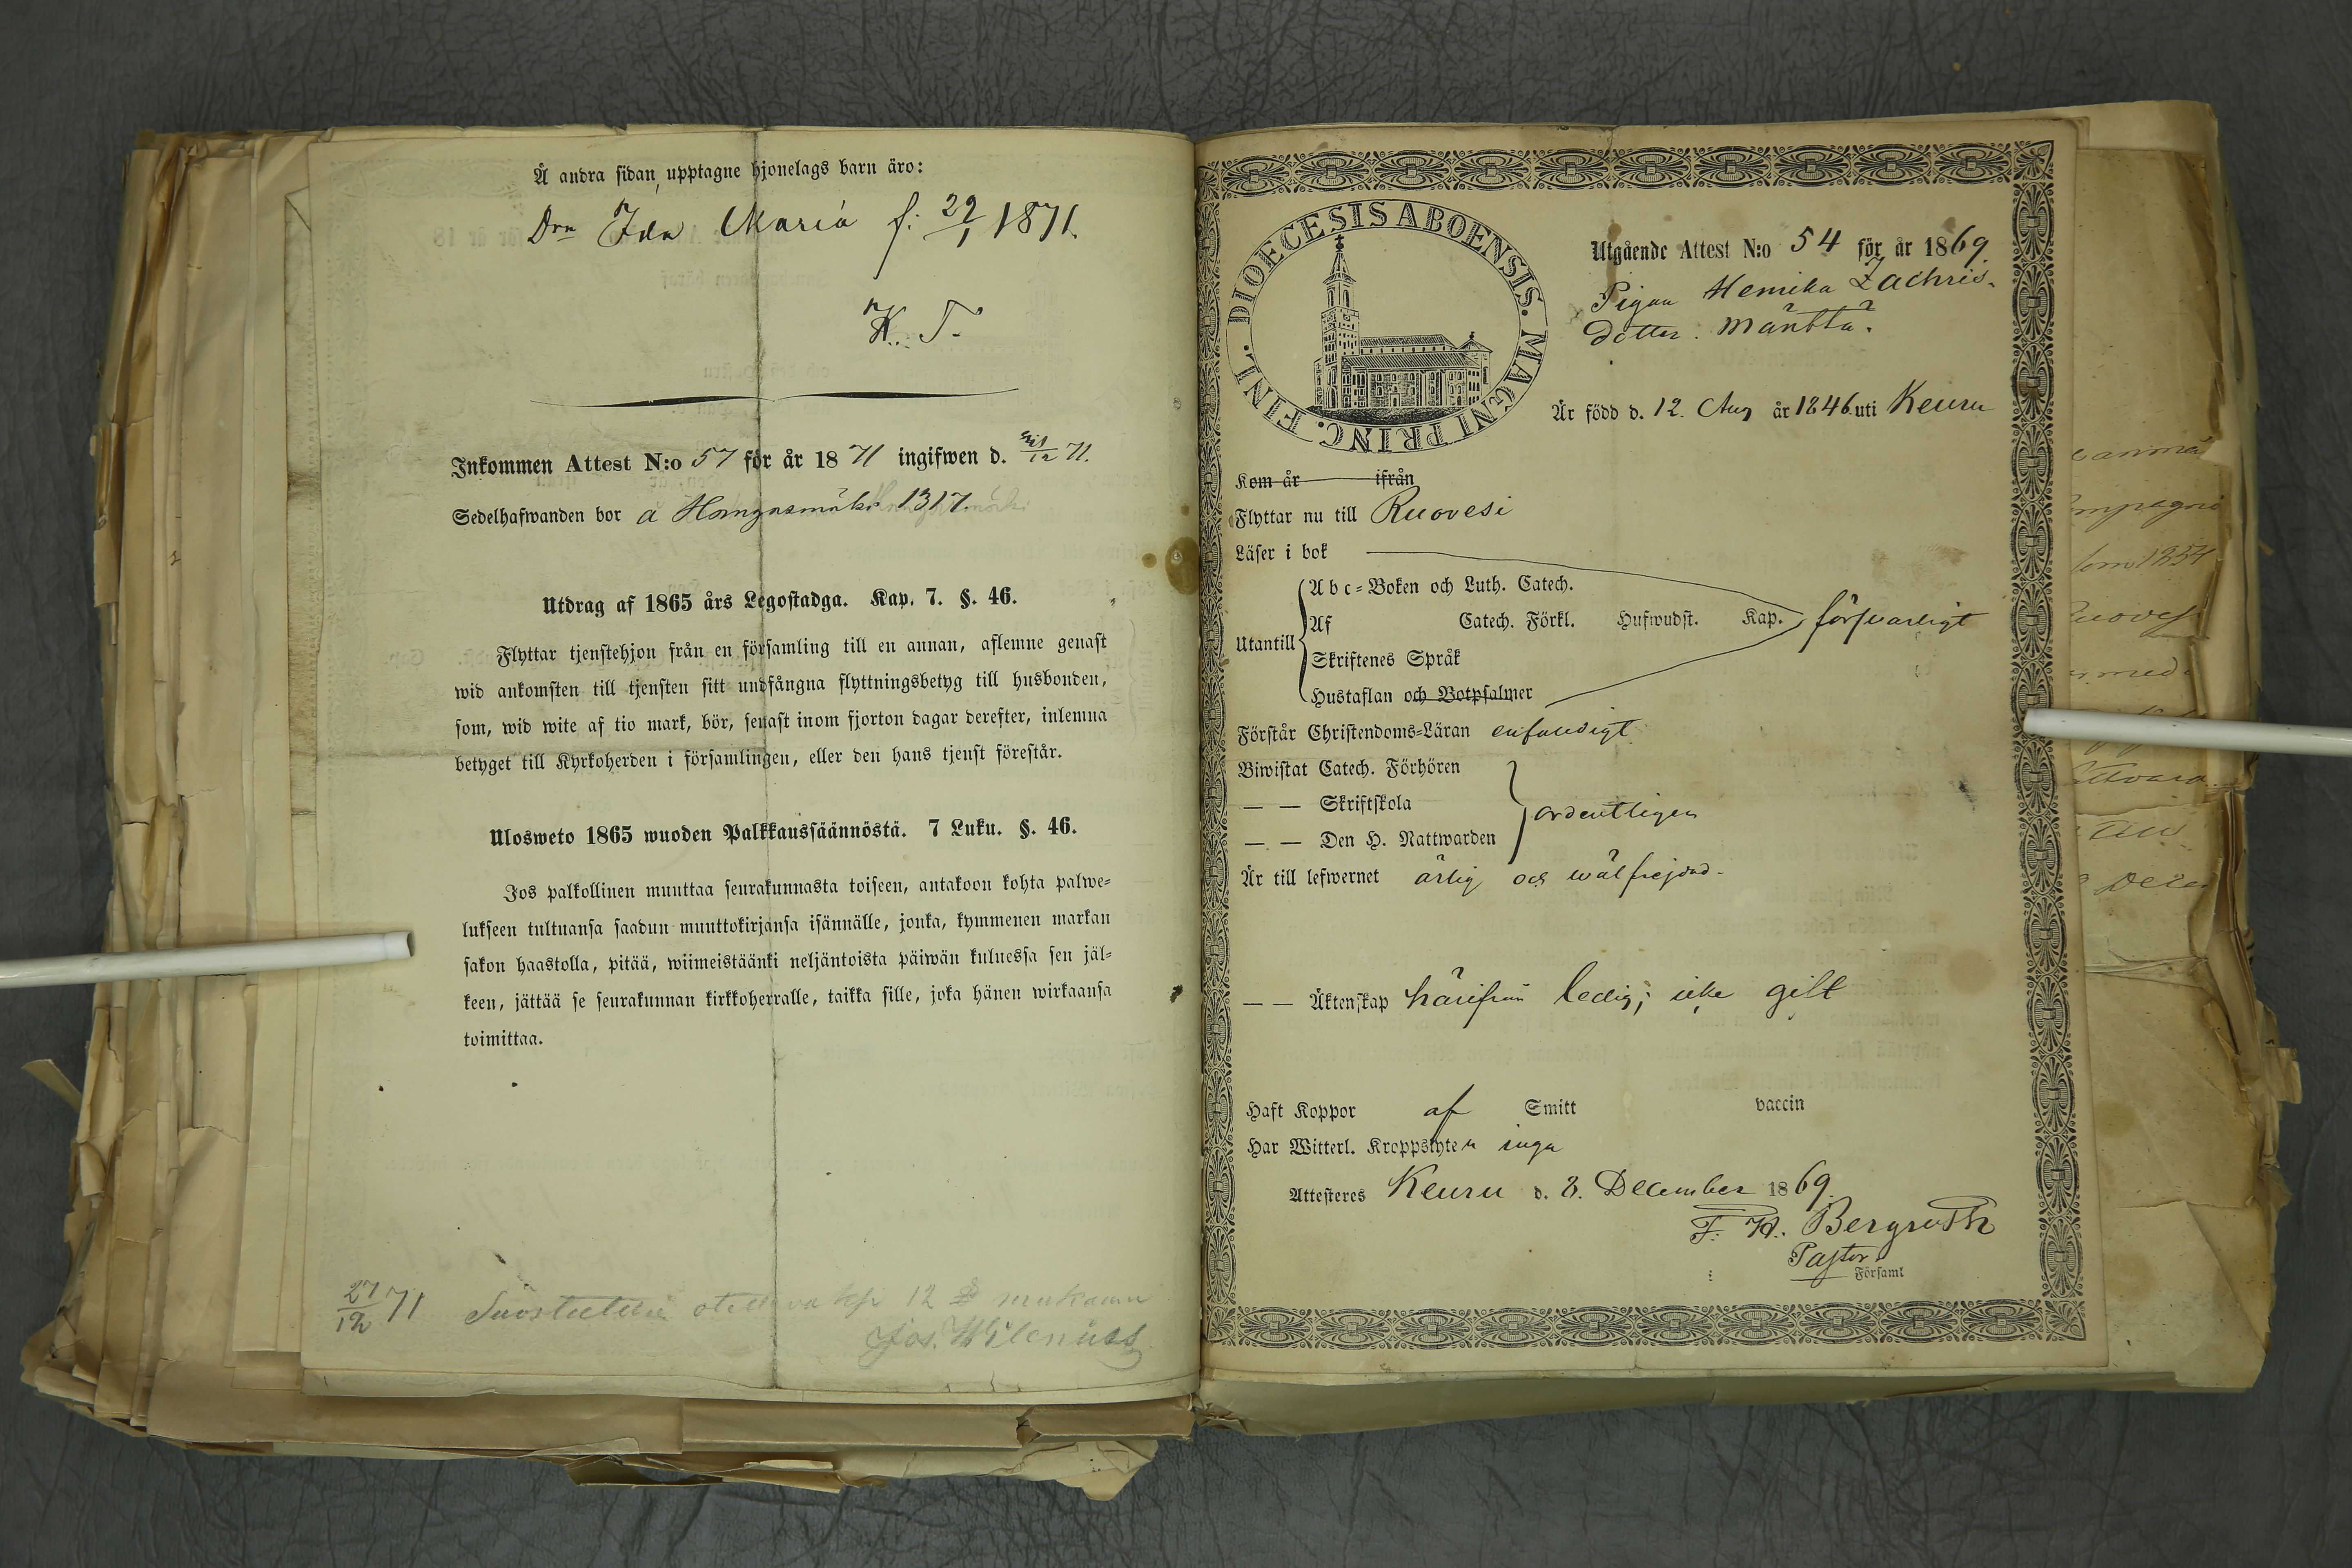 Å andra sidan upptagne hjonelags barn äro:
Drn Ida Maria f: 29/1 1871.
K. T.
Inkommen Attest N:o 57 för år 1871 ingifwen d. /12 71.
Sedelhafwanden bor å Hangasmäki 1317.
Utdrag af 1865 års Legostadga. Kap. 7. §. 46.
Flyttar tjenstehjon från en församling till en annan, aflemne genast
wid ankomsten till tjensten sitt undfångna flyttningsbetyg till husbonden,
som, wid wite af tio mark, bör, senast inom fjorton dagar derefter, inlemna
betyget till Kyrkoherden i församlingen, eller den hans tjenst förestår.
Ulosweto 1865 wuoden Palkkaussäännöstä. 7 Luku. §. 46.
Jos palkollinen muuttaa seurakunnasta toiseen, antakoon kohta palwe-
lukseen tultuansa saadun muuttokirjansa isännälle, jonka, kymmenen markan
sakon haastolla, pitää, wiimeistäänki neljäntoista päiwän kuluessa sen jäl-
keen, jättää se seurakunnan kirkkoherralle, taikka sille, joka hänen wirkaansa
toimittaa.
27/12 71 12 mukaan
Jos. Wilenius
DIOECESIS ABOENSIS. MAGNI PRINC. FINL.
Utgående Attest N:o 54 för år 1869.
Pigan Henrika Zachris-
dotter Mänttä.
Är född d. 12. Aug år 1846 uti Keuru
Kom år ifrån
Flyttar nu till Ruovesi
Läser i bok
Utantill
Abc-Boken och Luth. Catech.
Af Catech. Förkl. Hufwudst. Kap. försvarligt
Skriftenes Språk
Hustaflan och Botpsalmer
Förstår Christendoms-Läran enfaldigt
Biwistat Catech. Förhören
— — Skriftskola ordentligen
— — Den H. Nattwarden
Är till lefwernet ärlig och wälfrejdad.
— — Äktenskap härifrån ledig; icke gift
Haft Koppor af Smitt vaccin
Har Witterl. Kroppslyten inga
Attesteres Keuru d. 8. December 1869.
F. W. Bergroth
Pastor
Församl